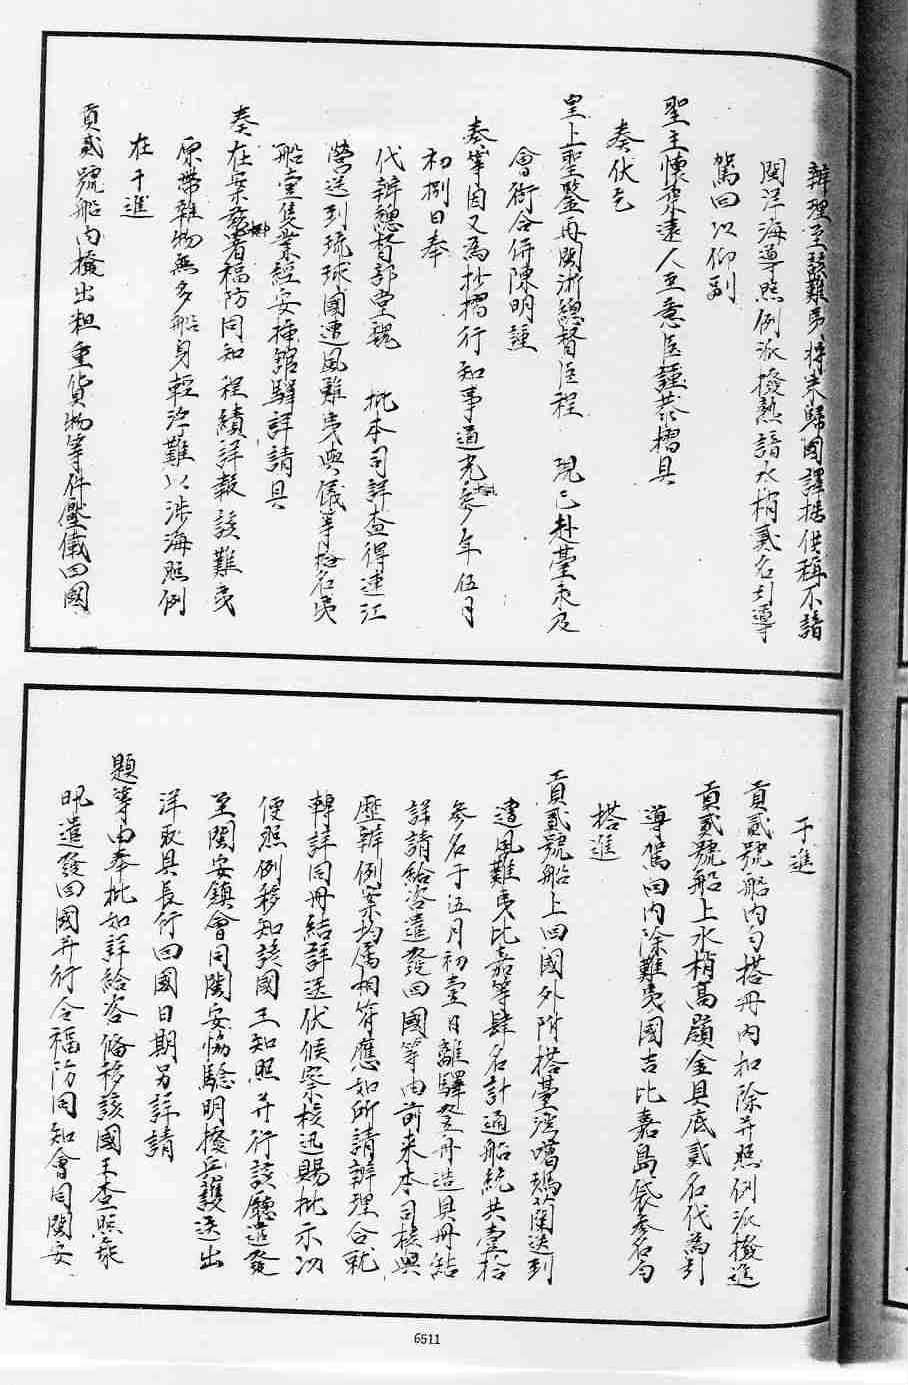 辦理至該難夷將來歸國譯據供稱不諳
閩洋海導照例派撥熟諳水梢貳名引導
駕回以仰副
聖主懷柔遠人至意臣謹恭摺具
奏伏乞
皇上聖鑒再閩浙總督臣程 現已赴臺未及
會銜合併陳明謹
奏等因又為抄摺行知事道光叁年伍月
初捌日奉
代辦總督部堂魏 批本司詳查得連江
營送到琉球國遭風難夷與儀等捴名夷
船壹隻業經安插館驛詳請具
奏在案茲署福防同知程績詳報該難夷
原帶雜物無多船身輕浮難以涉海照例
在于進
貢貳號船內撥出粗重貨物等件壓儎回國
于進
貢貳號船內勻搭丹內扣除并照例派撥進
貢貳號船上水梢高嶺金具底貳名代為引
導駕回內除難夷國吉比嘉島袋叁名勻
搭進
貢貳號船上回國外附搭臺灣噶瑪蘭送到
遭風難夷比嘉等肆名計通船統共壹拾
叁名于伍月初壹日離驛登舟造具冊結
詳請給咨遣發回國等由前來本司核與
歷辦例案均屬相符應如所請辦理合就
轉詳同冊結詳送伏候察核迅賜批示以
便照例移知該國王知照并行該廳遣發
至閩安鎮會同閩安協驗明撥兵護送出
洋取具長行回國日期另詳請
題等由奉批如詳給咨備移該國王查照飭
吡遣發回國并行令福防同知會同閩安
6511